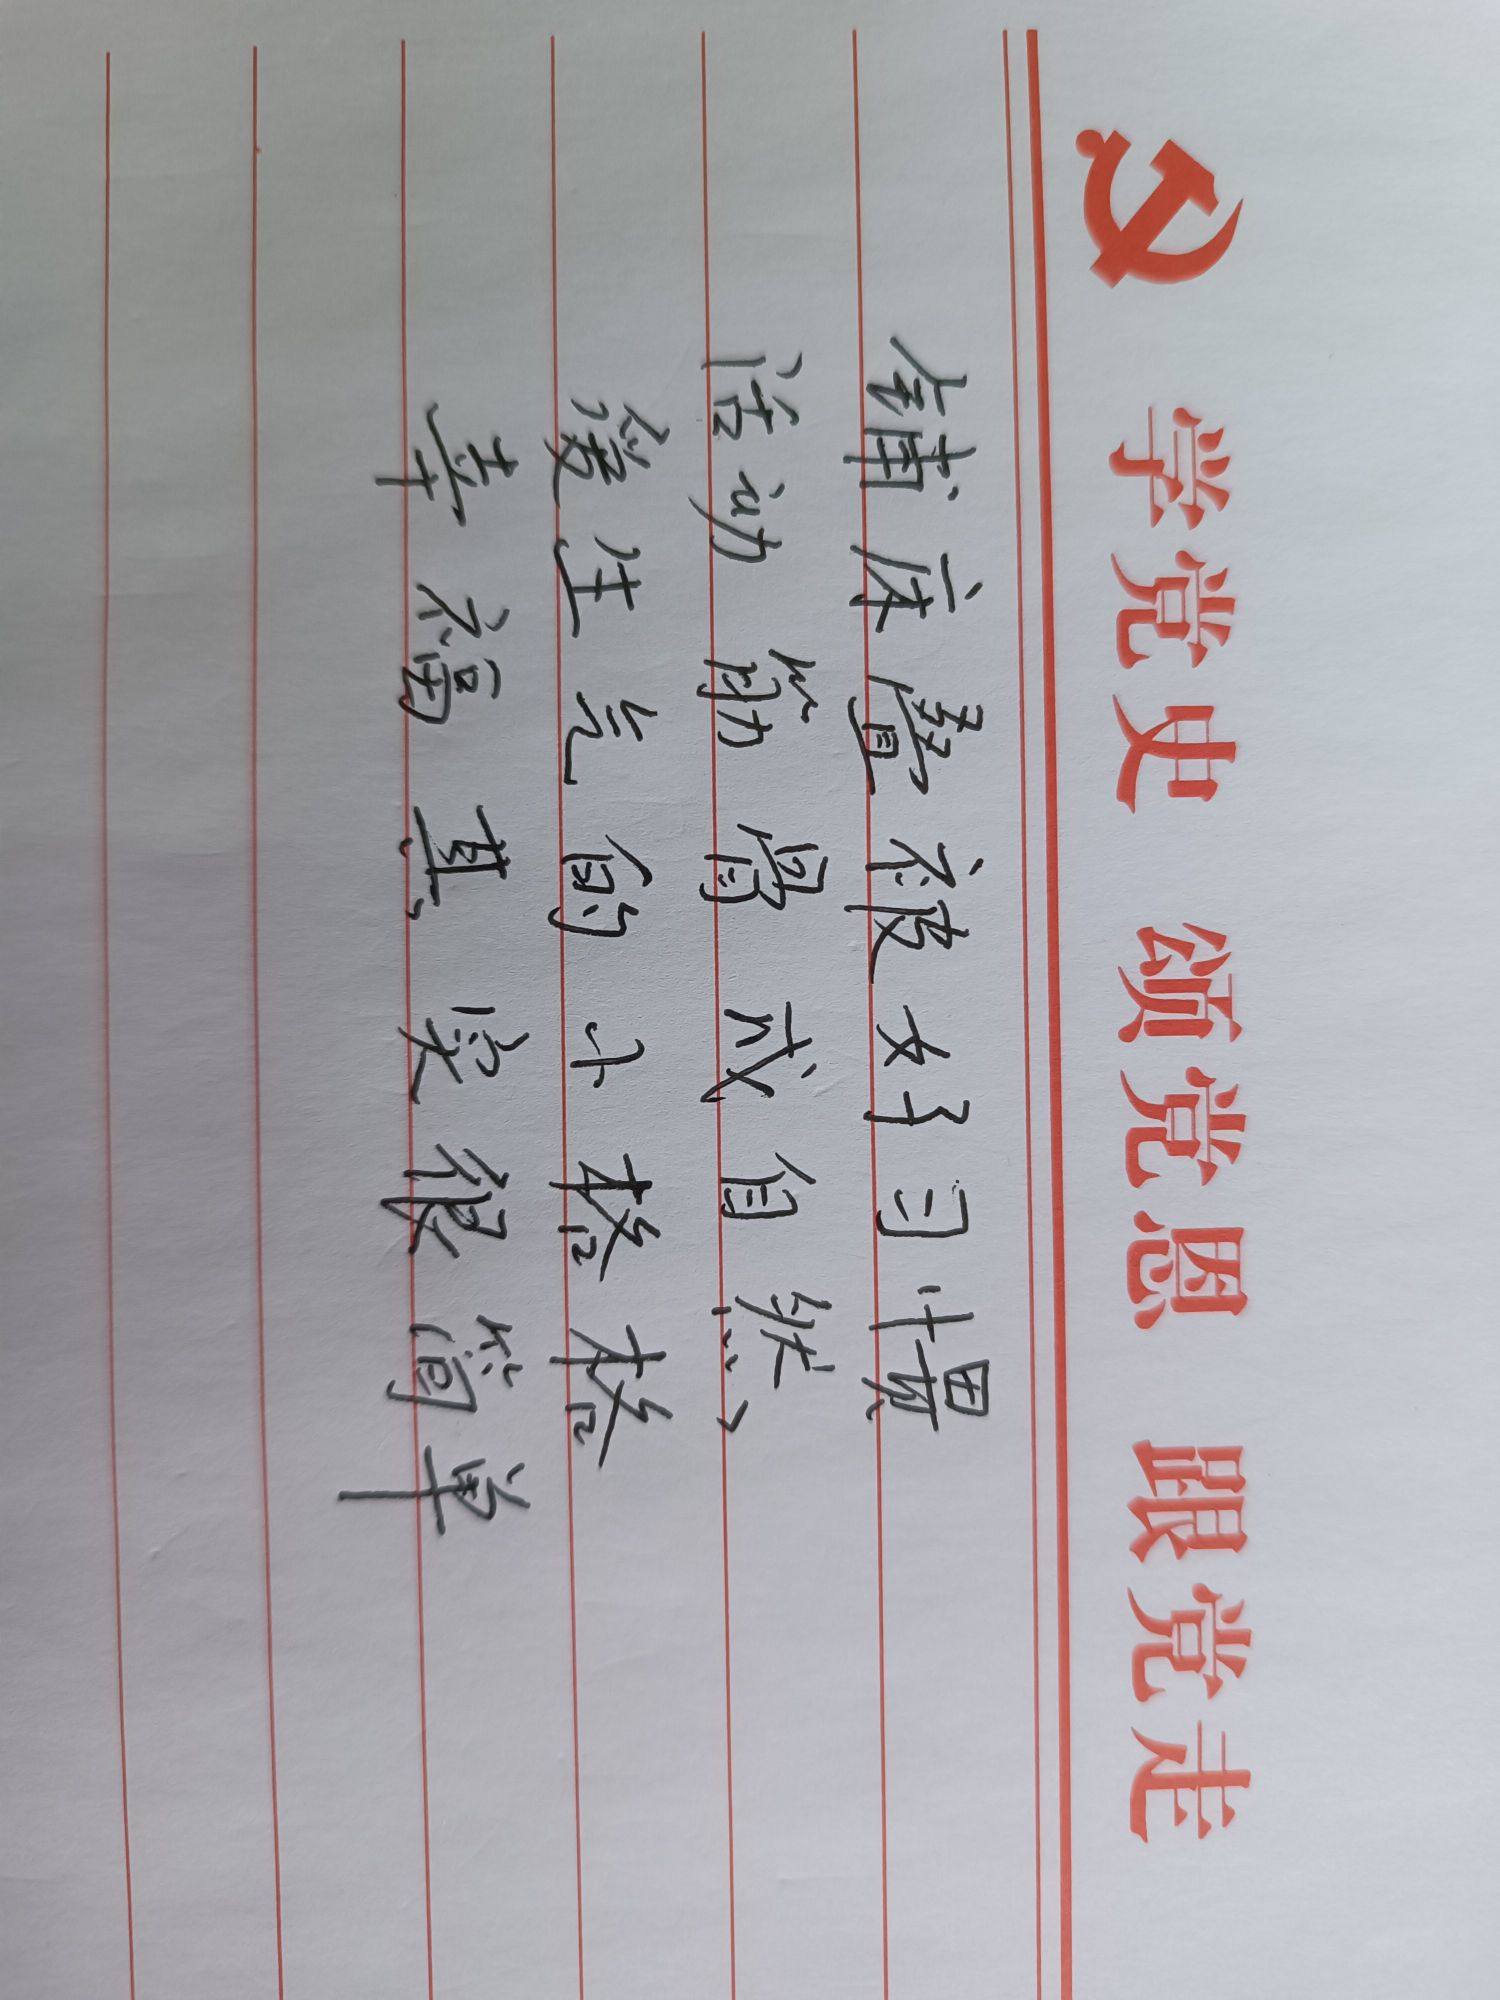 学党史 颂党恩 跟党走
铺床叠被好习惯
活动筋骨成自然、
爱生气的小格格
幸福其实很简单